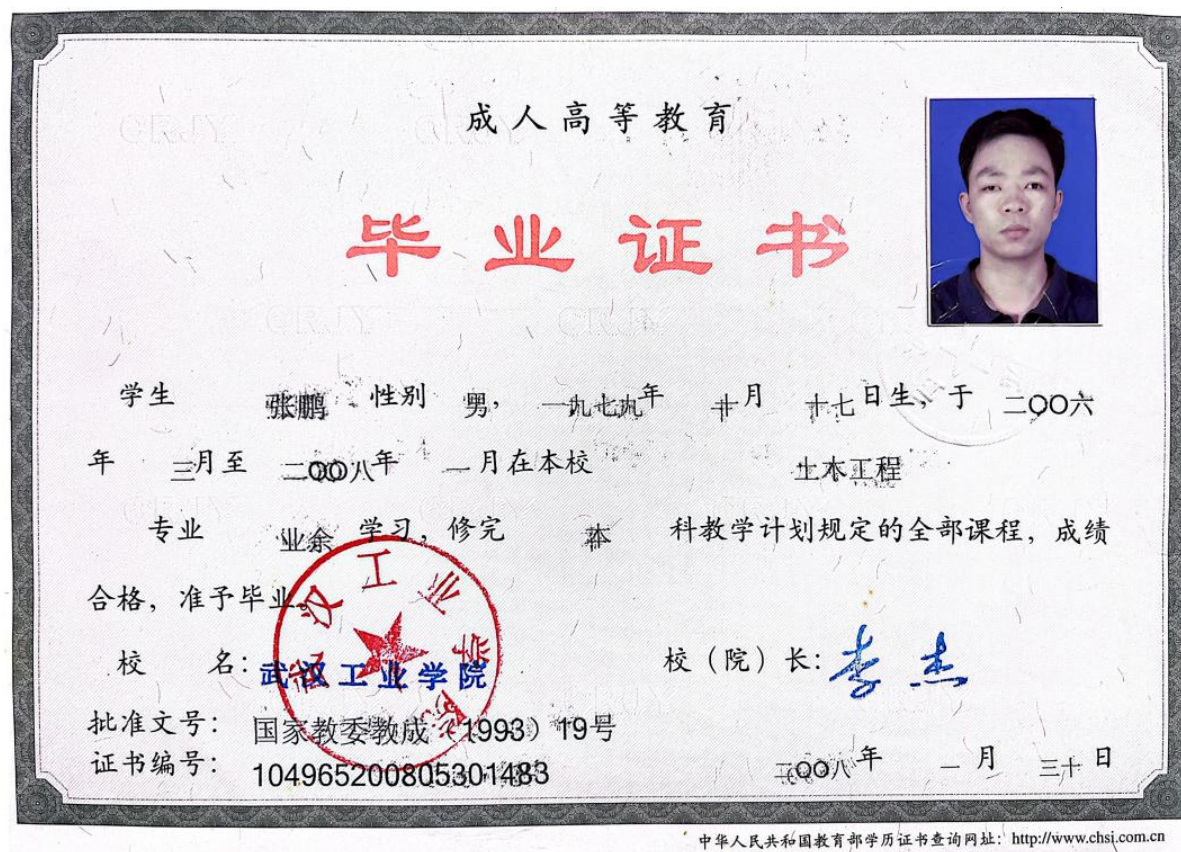 成人高等教育
毕业证书
学生 张鹏 性别 男, 一九七九年 十月 十七日生, 于 二〇〇六
年 三月至 二〇〇八年 一月在本校 土木工程
专业 业余 学习, 修完 本 科教学计划规定的全部课程, 成绩
合格, 准予毕业。
校 名: 武汉工业学院 校（院）长: 李杰
批准文号: 国家教委教成（1993）19号
证书编号: 104965200805301483 二〇〇八年 一月 三十日
武汉工业学院
中华人民共和国教育部学历证书查询网址: http://www.chsi.com.cn